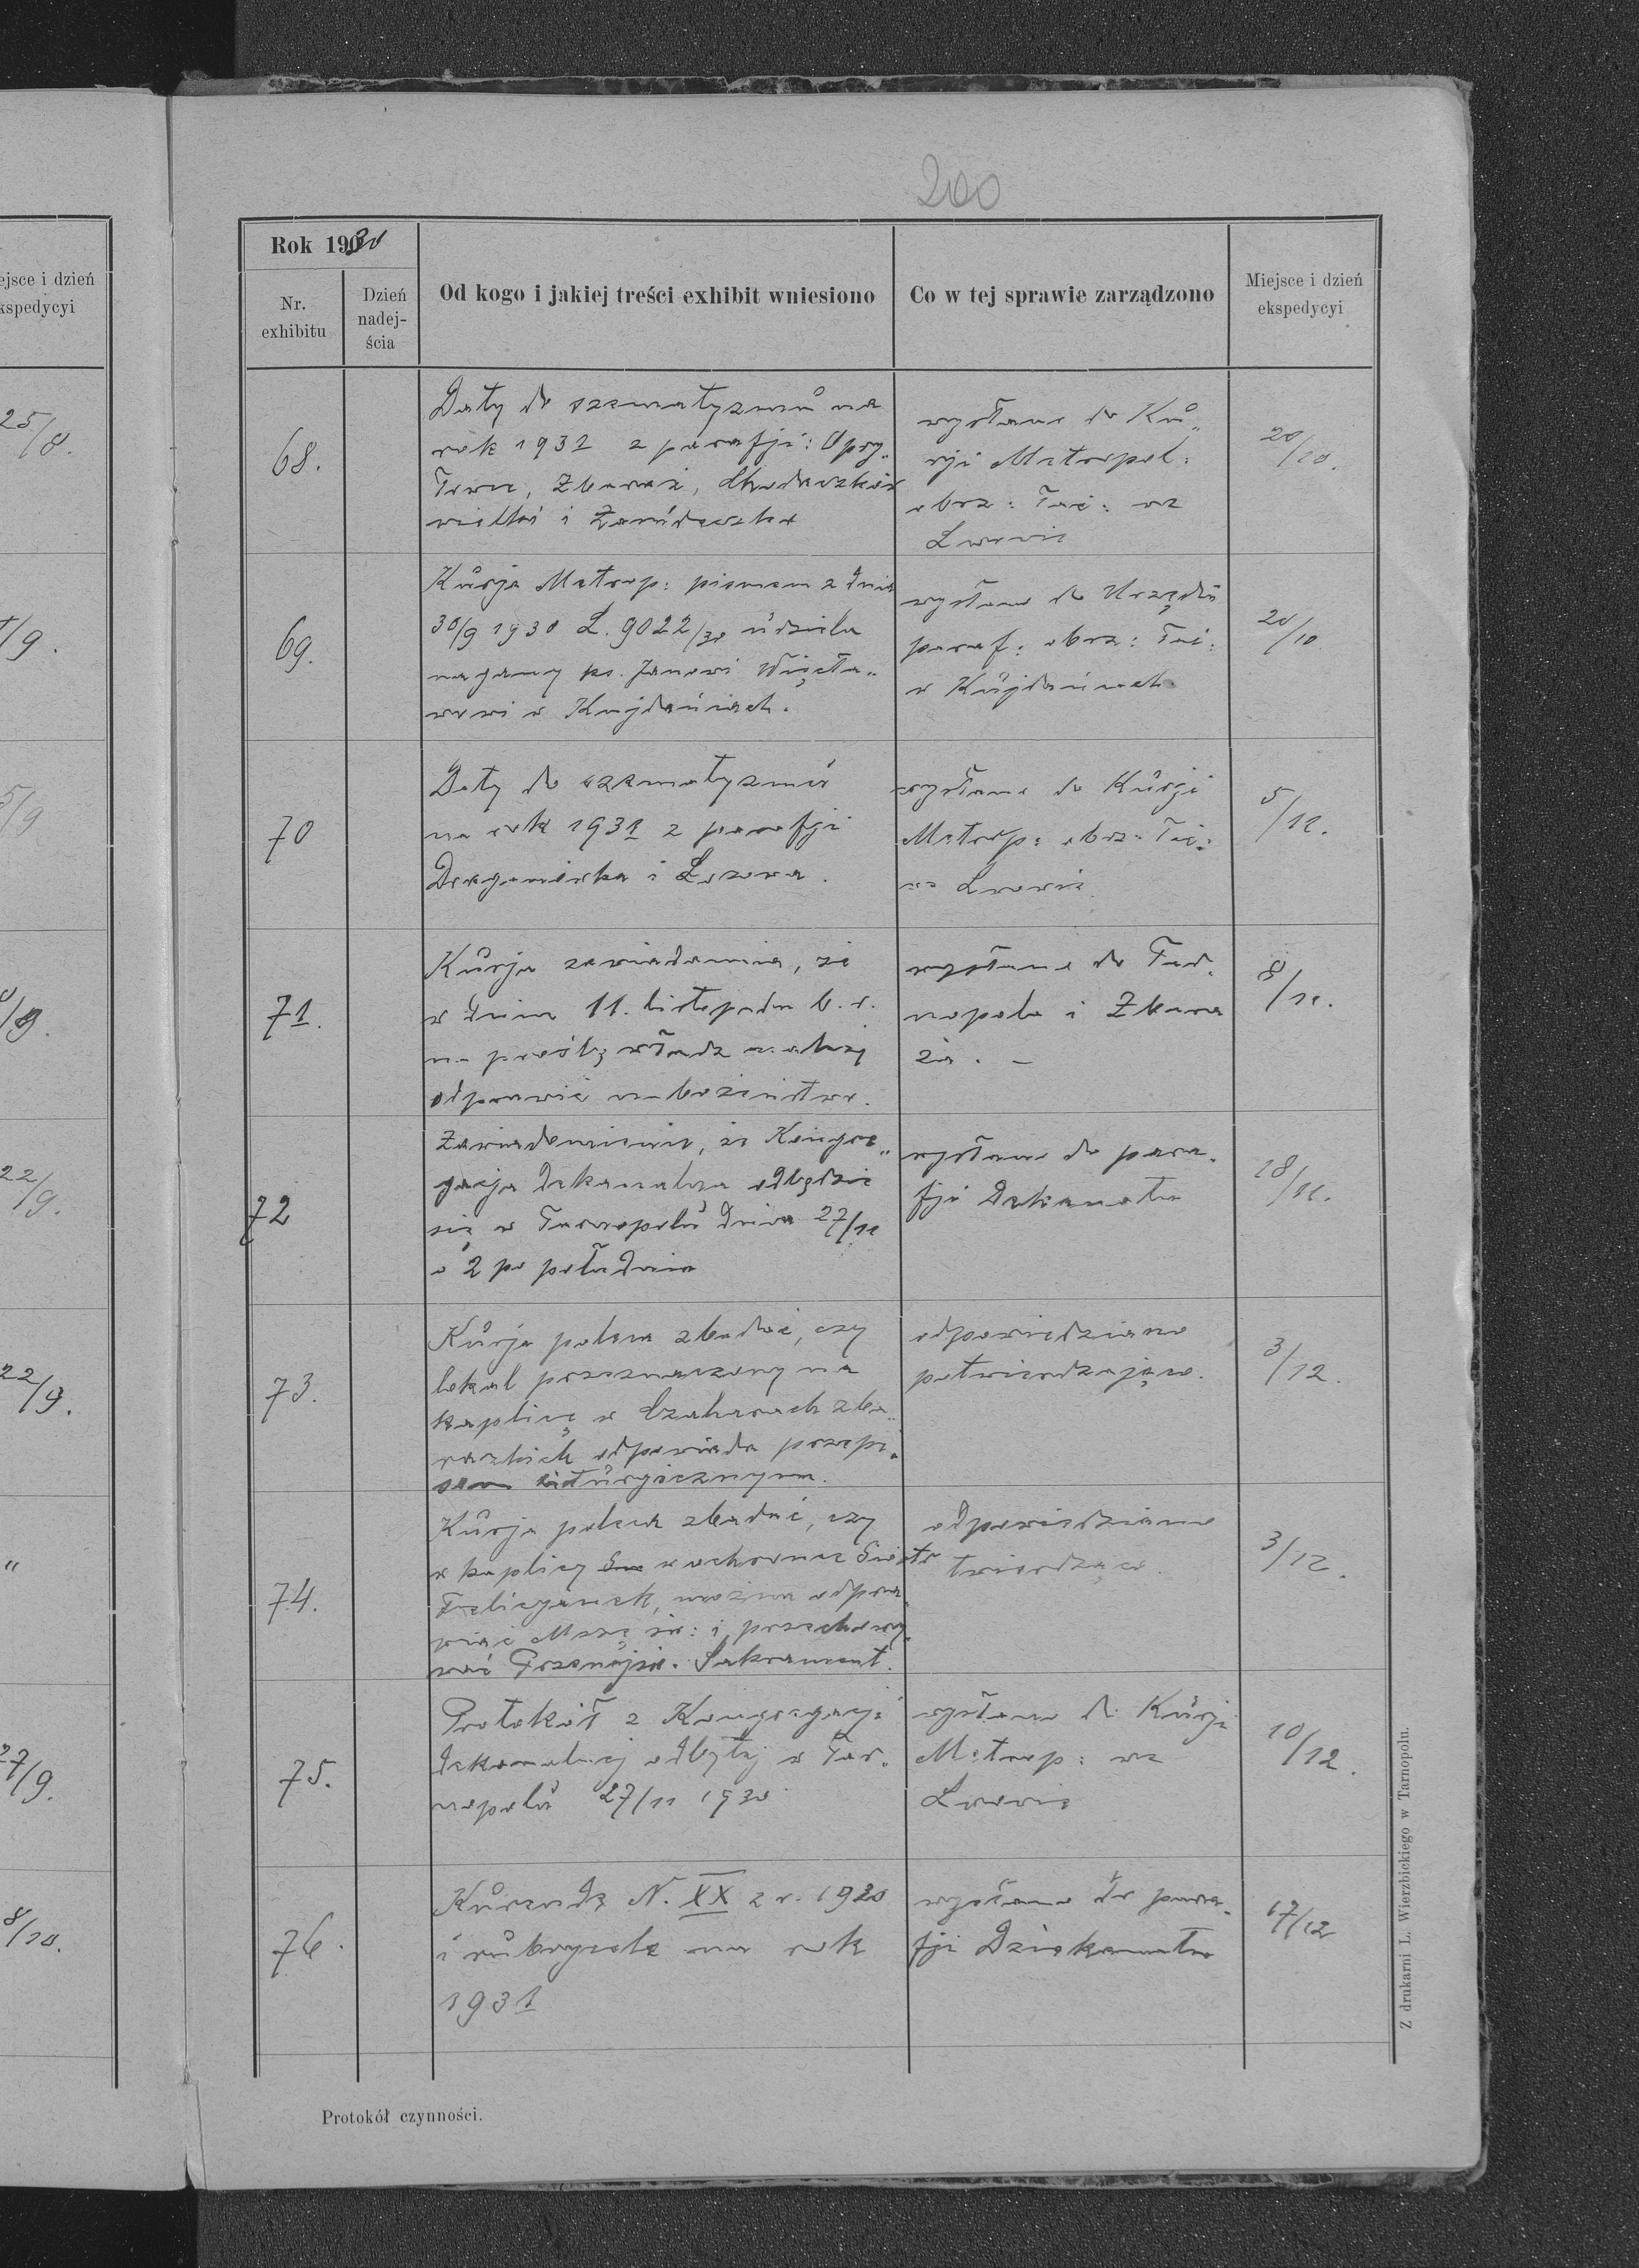 200
ejsce i dzień
kspedycyi
25/8.
/9.
5/9
/9.
22/9.
22/9.
"
27/9.
8/10.
Rok 1930
Nr.
exhibitu
Dzień
nadej-
ścia
Od kogo i jakiej treści exhibit wniesiono
Co w tej sprawie zarządzono
Miejsce i dzień
ekspedycyi
68.
Daty do szematyzmu na
rok 1931 z parafji: Opry„
łowce, Zbaraż, Chodaczków
wielki i Zarudeczko
wysłano do Ku„
rji Metropol:
obrz: łać: we
Lwowie
20/10.
69.
Kurja Metrop: pismem z dnia
30/9 1930 L. 9022/30 udziela
nagany ks. Janowi
w Kujdańcach.
wysłano do Urzędu
paraf: obrz: łać:
w Kujdańcach
20/10
70
Daty do szematyzmu
na rok 1931 z parafji
Draganówka i Łozowa.
wysłano do Kurji
Metrop: obrz: łać:
we Lwowie
5/11.
71.
Kurja zawiadamia, że
w dniu 11. listopada b. r.
na prośbę władz należy
odprawić nabożeństwo.
wysłano do Tar„
nopola i Zbara
ża. –
8/11.
72
Zawiadomienie, że Kongre„
gacja dekanalna odbędzie
się w Tarnopolu dnia 27/11
o 2 po południu
wysłano do para„
fji Dekanatu
18/11.
73.
Kurja poleca zbadać, czy
lokal przeznaczony na
kaplicę w Czaharach zba„
razkich odpowiada przepi„
som liturgicznym.
odpowiedziano
potwierdzająco.
3/12.
74.
Kurja poleca zbadać, czy
w kaplicy w ochronce Sióstr
Felicjanek, można odpra„
wiać Mszę św: i przechowy„
wać Przenajśw. Sakrament.
odpowiedziano
twierdząco.
3/12.
75.
Protokół z Kongregacji
dekanalnej odbytej w Tar„
nopolu 27/11 1930
wysłano do Kurji
Metrop: we
Lwowie
10/12.
76.
Kurendę N. XX z r. 1930
i rubrycelę na rok
1931
wysłano do para„
fji Dziekanatu
17/12
Protokół czynności.
Z drukarni L. Wierzbickiego w Tarnopolu.